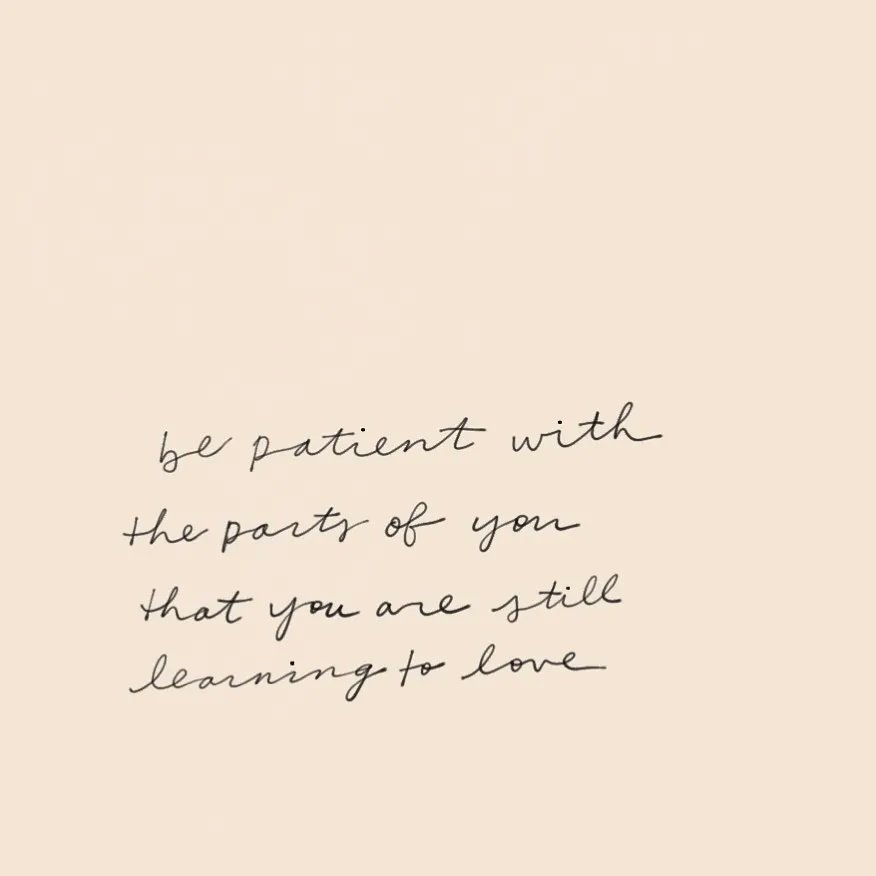 be patient with
the parts of you
that you are still
learning to love